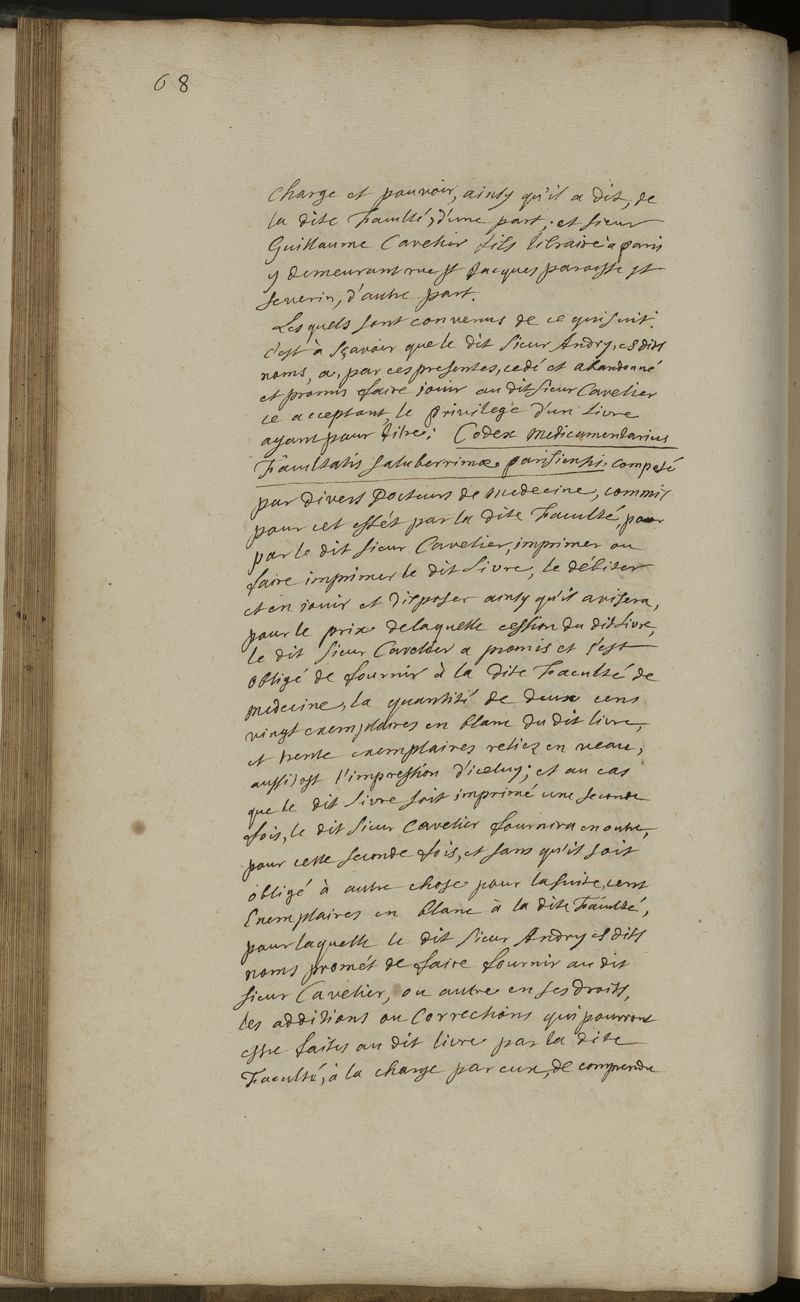 68
Charge et pouvoir, ainsy qu'il a dit, de
la dite Faculté, d'une part, et sieur
Guillaume Cavelier fils libraire a paris
y demeurant rue st Jacques paroisse st
severin, d'autre part.
Lesquels sont convenus de ce qui suit.
c'est à sçavoir que le dit sieur Andry, esdits
noms, a, par ces presentes, cedé et abandonné
et promis faire jouir au dit sieur Cavelier
ce acceptant, le privilege d'un Livre
ayant pour titre; Codex Medicamentarius
Facultatis saluberrimæ parisiensis. composé
par divers Docteurs de medecine, commis
pour cet effét par la dite Faculté, pour
par le dit sieur Cavelier, imprimer ou
faire imprimer le dit Livre, le débiter
et en jouir et disposer ainsy qu'il avisera,
pour le prix de laquelle cession du dit Livre,
le dit sieur Cavelier a promis et s'est
obligé de fournir à la dite Faculté de
medecine, la quantité de deux cens
vingt exemplaires en blanc du dit livre,
et trente exemplaires reliez en veau,
aussitost l'impression d'iceluy; et au cas
que le dit Livre soit imprimé une seconde
fois, le dit sieur Cavelier fournira en outre,
pour cette seconde fois, et sans qu'il soit
obligé à autre chose pour la suite, cent
Exemplaires en blanc à la dite Faculté,
pour laquelle le dit sieur Andry esdits
noms promét de faire fournir au dit
sieur Cavelier, ou autre en ses droits,
les additions ou Corrections qui pourront
estre faites au dit livre par la dite
Faculté, à la charge par eux, de comprendre